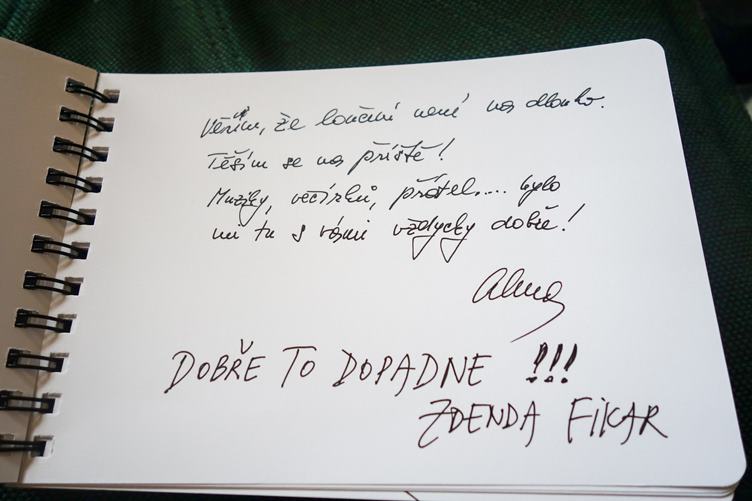 Věřím, že loučení není na dlouho.
Těším se na příště!
Muziky, večírků, přátel.... bylo
mi tu s vámi vždycky dobře!
Alena
DOBŘE TO DOPADNE !!!
ZDENDA FIKAR